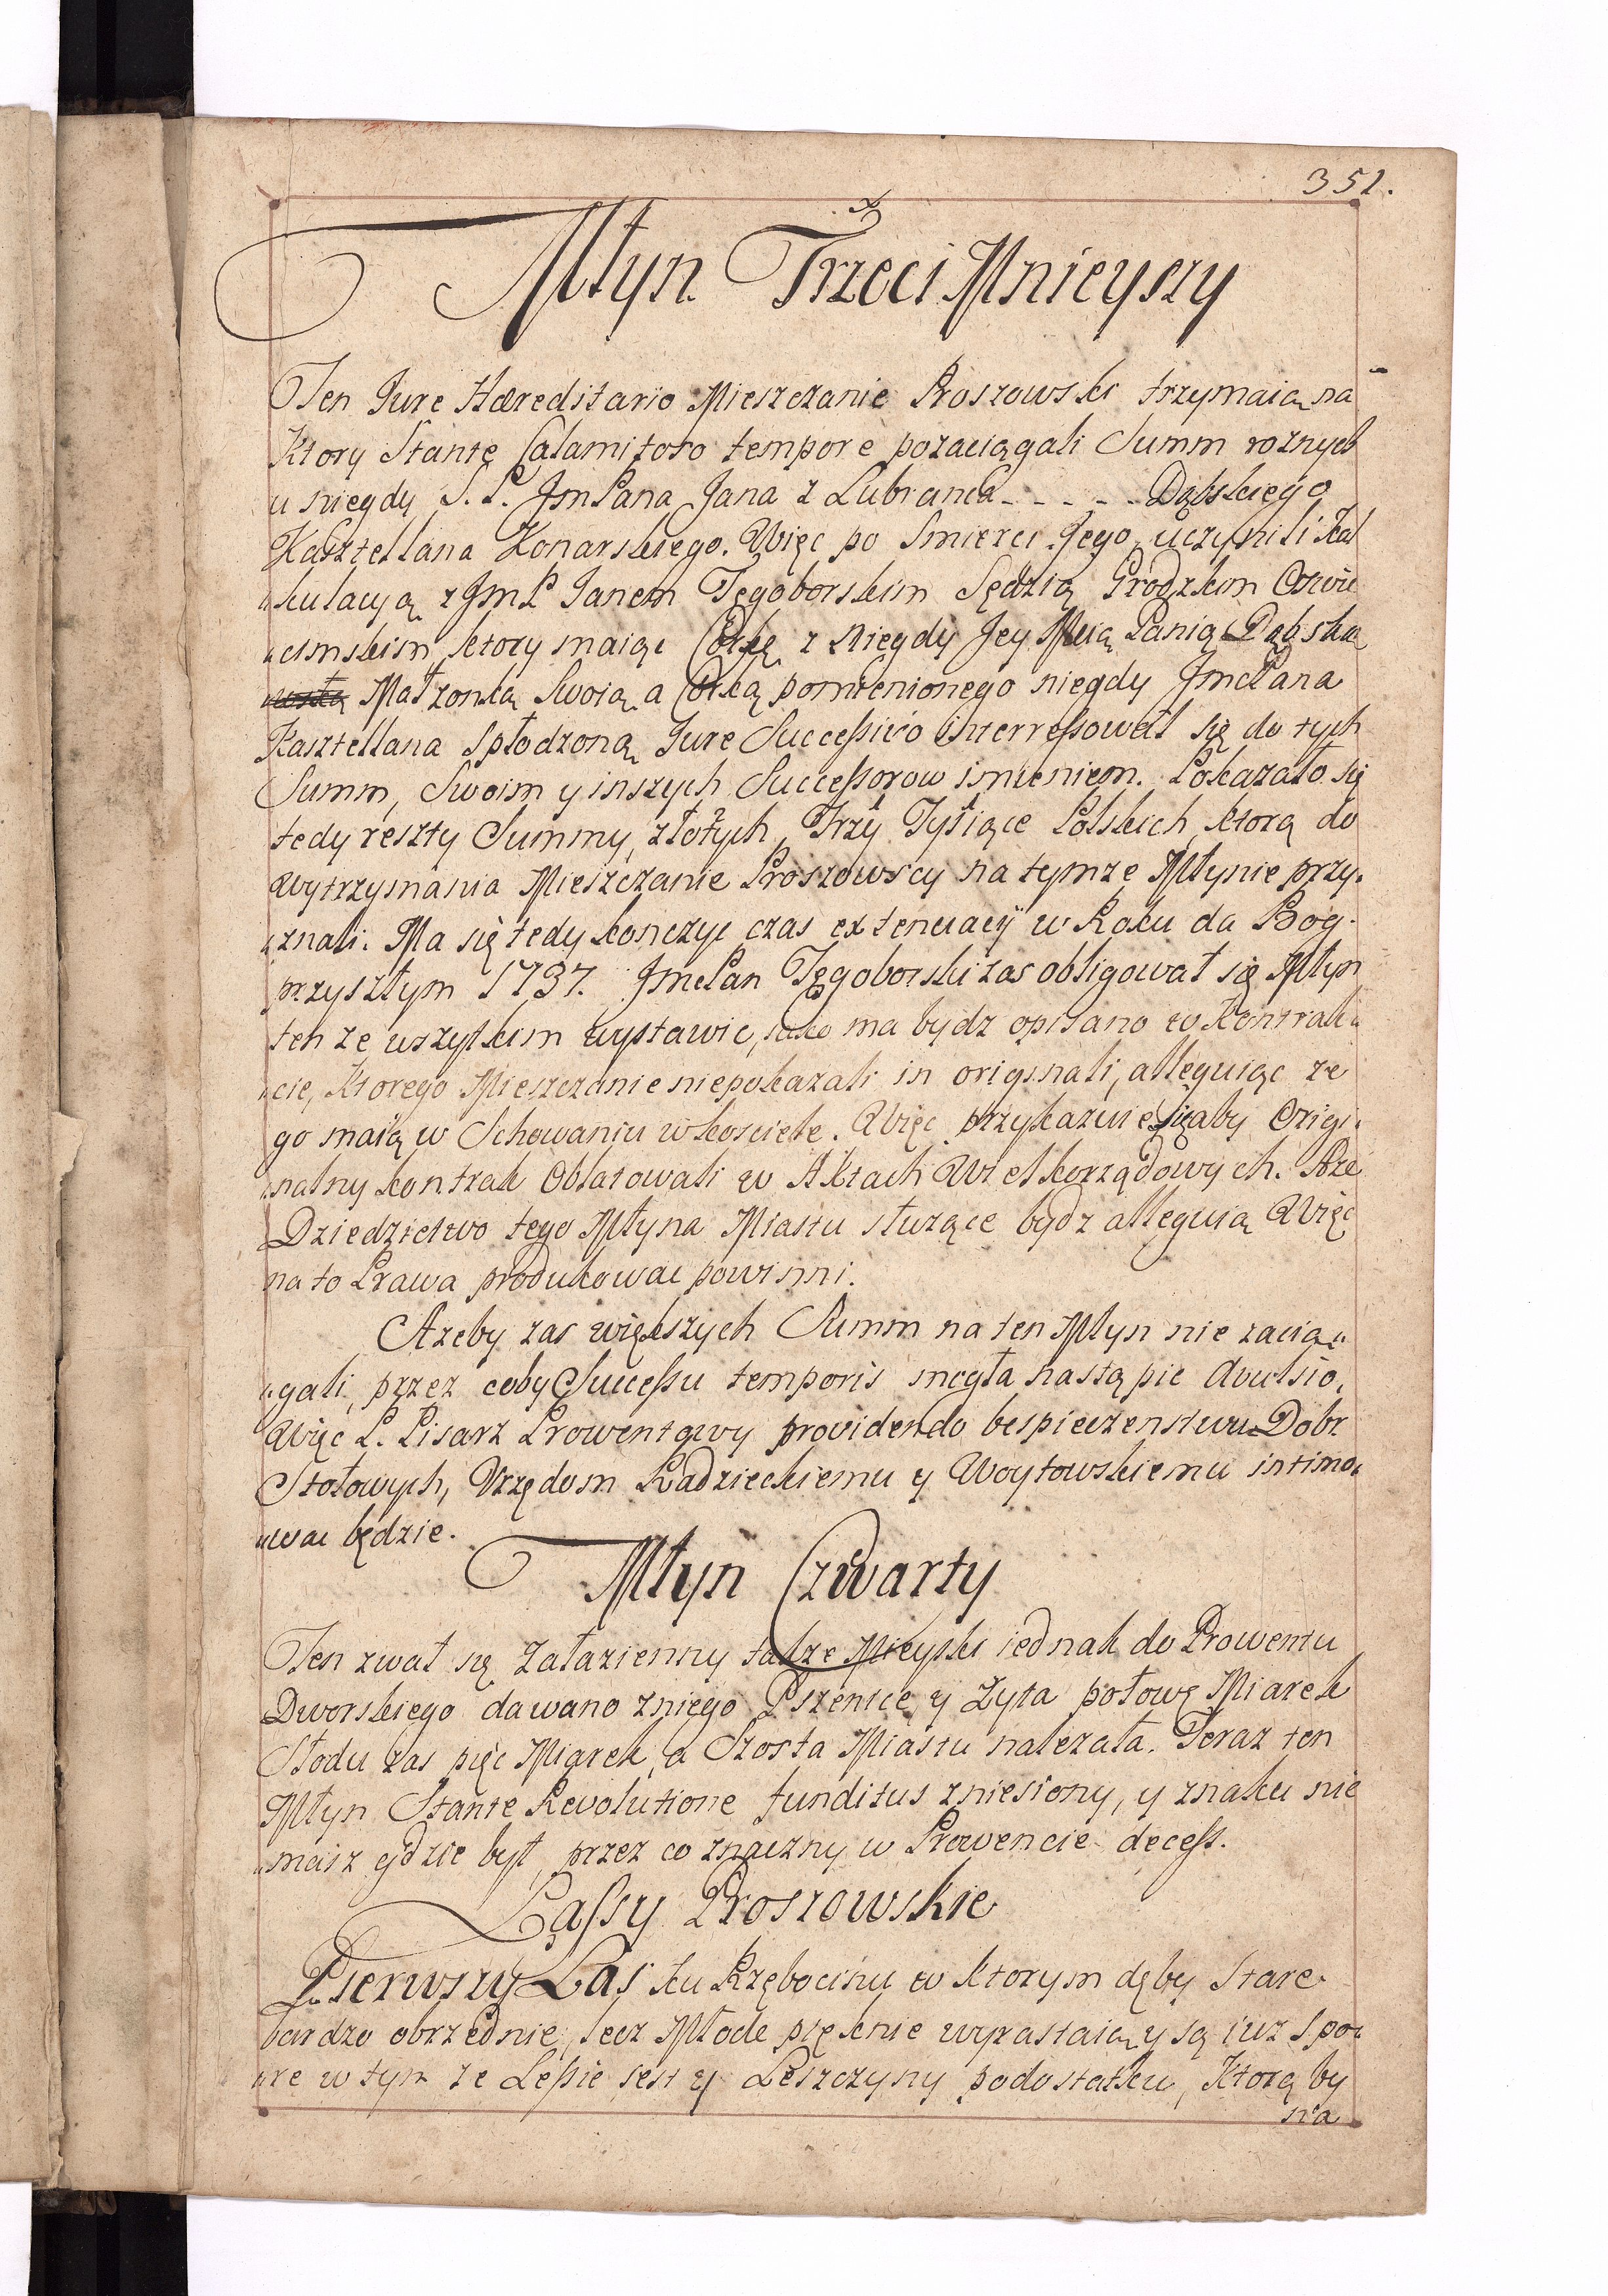 351.
Młyn Trzeci Mnieyszy
Ten Jure Hæreditario Mieszczanie Proszowski trzymaią na
Ktory Stante Calamitoso tempore pozaciągali Summ roznych
u niegdy S. P. JmPana Jana z Lubrancа - - - - - Dąbskiego
Kasztellana Konarskiego. Więc po Smierci Jego, uczynili Kal
"kulacyą z JmP Janem Tęgoborskim Sędzią Grodzkim Oswie
"cimskim, ktory maiąc Corkę z niegdy Jey Mcią Panią Dąbską
Małzonką Swoią a Corką pomienionego niegdy JmcPana
Kasztellana Spłodzoną Jure Successivo interressował się do tych
Summ, Swoim y inszych Successorow imieniem. Pokazało się
tedy reszty Summy, złotych Trzy Tysiące Polskich, ktorą do
wytrzymania Mieszczanie Proszowscy na tymze Młynie przy„
„znali. Ma się tedy konczyc czas extenuacyi w Roku da Bog
przyszłym 1737. JmcPan Tęgoborski zas obligował się Młyn
ten ze wszytkim wystawic, iako ma bydz opisano w Kontrak„
„cie, Ktorego Mieszczanie niepokazali in originali, alleguiąc ze
go maią w Schowaniu w kosciele. Więc przykazuie się aby Origi„
„nalny kontrakt Oblatowali w Aktach Wielkorządowych. Aze
Dziedzictwo tego Młyna Miastu słuzące bydz alleguią Więc
na to Prawa produkowac powinni.
Azeby zas większych Summ na ten Młyn nie zacią„
„gali, przez coby Successu temporis mogła nastąpic Avulsio,
Więc P. Pisarz Prowentowy providendo bespieczenstwu Dobr
Stołowych, Urzędom Radzieckiemu y Woytowskiemu intimo„
„wac będzie.
Młyn Czwarty
Ten zwał się Załazienny takze Mieyski iednak do Prowentu
Dworskiego dawano zniego Pszenice y Zyta połowę Miarek
Słodu zas pięc Miarek, a Szosta Miastu nalezała. Teraz ten
Młyn Stante Revolutione funditus zniesiony, y znaku nie
„masz gdzie był, przez co znaczny w Prowencie decess.
Lassy Proszowskie
Pierwszy Las ku Rzębocinu w ktorym dęby Stare
bardzo obrzednie, lecz Młode pięknie wyrastaią y są iuz Spo„
„re w tym ze Lesie iest y Leszczyny podostatku, Ktorą by
na